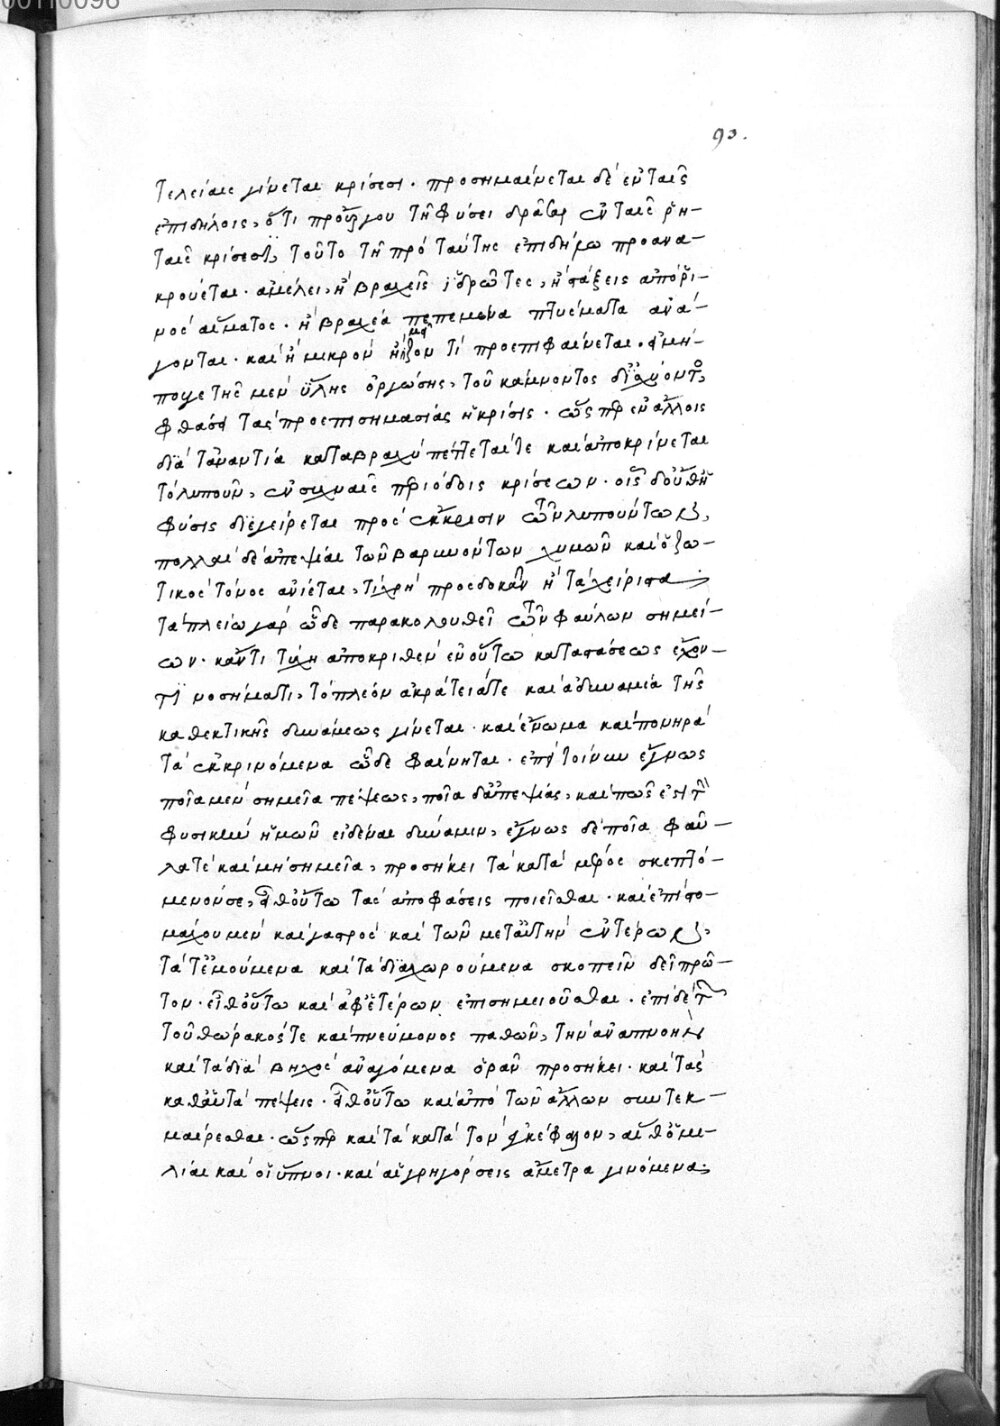 00110098
90.
τελείαις γίνεται κρίσεσι. προσημαίνεται δὲ ἐν ταῖς
ἐπιδήλοις, ὅτι προὔργου τῇ φύσει δρᾶται ἐν ταῖς ῥη-
ταῖς κρίσεσι, τοῦτο τῇ πρὸ ταύτης ἐπιδήμω προανα-
κρούεται. ἀμέλει, ἢ βραχεῖς ἱδρῶτες, ἢ στάξεις ἀπὸ ῥι-
νὸς αἵματος. ἢ βραχέα πεπεμμένα πτύσματα ἀνά-
γονται. καὶ ἢ μικρὸν τί προεπιφαίνεται. εἰ μή-
που γε τῆς μὲν ὕλης ὀργώσης, τοῦ κάμνοντος
φθάσῃ τὰς προεπισημασίας ἡ κρίσις. ὥσπερ ἐν ἄλλοις
διὰ τἀναντία κατὰ βραχὺ πέττεταί τε καὶ ἀποκρίνεται
τὸ λυποῦν, ἐν συχναῖς περιόδοις κρίσεων. οἷς δ' οὔθ' ἡ
φύσις διεγείρεται πρὸς ἔκκρισιν τῶν λυπούντων,
πολλαὶ δὲ ἀπεψίαι τῶν βαρυνόντων χυμῶν καὶ ὁ ζω-
τικὸς τόνος ἀνίεται, τί χρὴ προσδοκᾶν ἢ τὰ χείριστα
τὰ πλείω γὰρ ὧδε παρακολουθεῖ τῶν φαύλων σημεί-
ων. κἄν τι τύχῃ ἀποκριθὲν ἐν οὕτω καταστάσεως ἔχον-
τι νοσήματι, τὸ πλέον ἀκράτειά τε καὶ ἀδυναμία τῆς
καθεκτικῆς δυνάμεως γίνεται. καὶ ἔνωμα καὶ πονηρὰ
τὰ ἐκκρινόμενα ὧδε φαίνηται. ἐπεὶ τοίνυν ἔγνως
ποῖα μὲν σημεῖα πέψεως, ποῖα δ' ἀπεψίας, καὶ πῶς ἐστὶ τὴν
φυσικὴν ἡμῶν εἰδέναι δύναμιν, ἔγνως δὲ ποῖα φαῦ-
λά τε καὶ μὴ σημεῖα, προσήκει τὰ κατὰ μέρος σκεπτό-
μενόν σε, εἶθ' οὕτω τὰς ἀποφάσεις ποιεῖσθαι. καὶ ἐπὶ στο-
μάχου μὲν καὶ γαστρὸς καὶ τῶν μετ' αὐτὴν ἐντέρων,
τὰ τ' ἐμούμενα καὶ τὰ διαχωρούμενα σκοπεῖν δεῖ πρῶ-
τον. εἶθ' οὕτω καὶ ἀφ' ἑτέρων ἐπισημειοῦσθαι. ἐπὶ δὲ τῶν
τοῦ θώρακός τε καὶ πνεύμονος παθῶν, τὴν ἀναπνοὴν
καὶ τὰ διὰ βηχὸς ἀναγόμενα ὁρᾶν προσήκει. καὶ τὰς
κατ' αὐτὰ πέψεις. εἶθ' οὕτω καὶ ἀπὸ τῶν ἄλλων συντεκ-
μαίρεσθαι. ὥσπερ καὶ τὰ κατὰ τὸν ἐγκέφαλον, αἵ θ' ὁμι-
λίαι καὶ οἱ ὕπνοι. καὶ αἱ γρηγόρσεις ἄμετρα γινόμεναι,